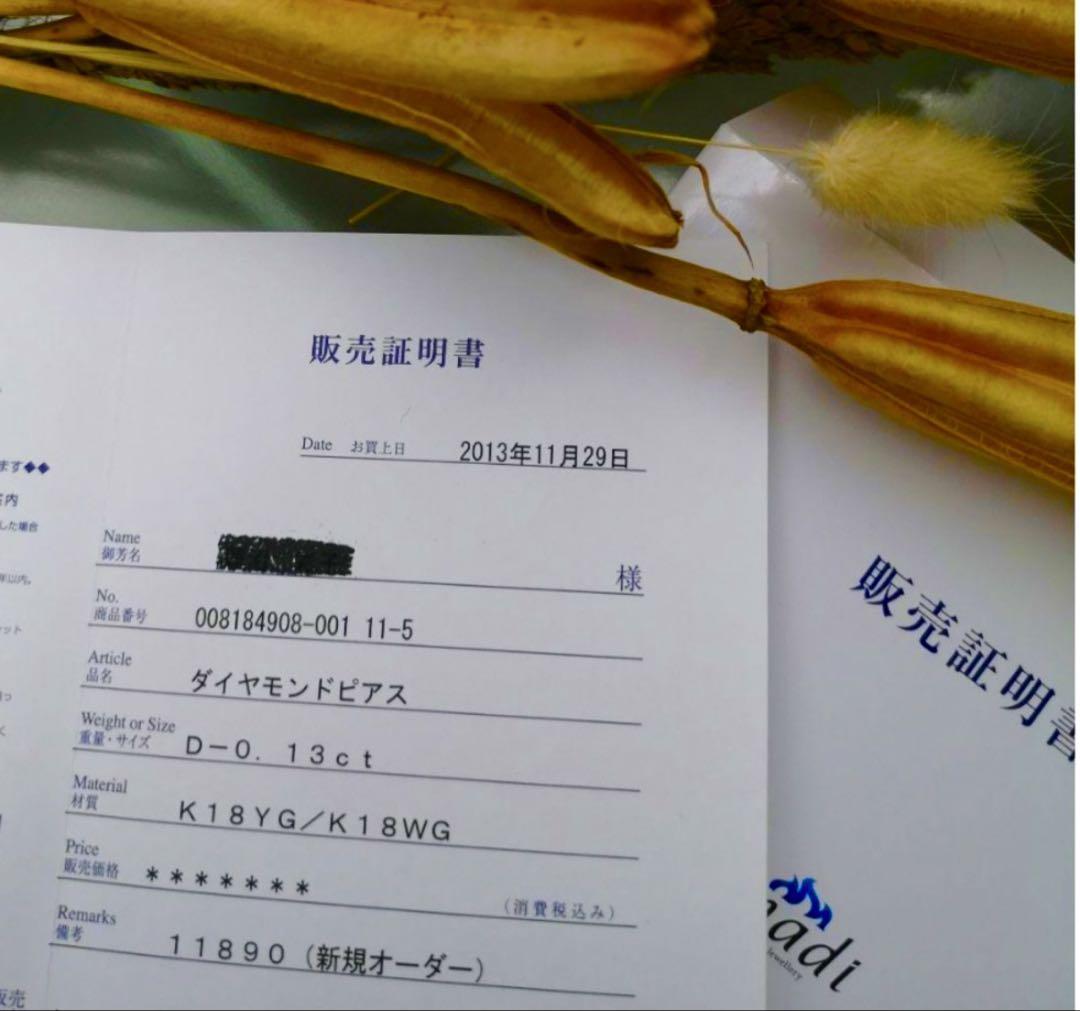 販売証明書
Date お買上日 2013年11月29日
Name
御芳名 様
No.
商品番号 008184908-001 11-5
Article
品名 ダイヤモンドピアス
Weight or Size
重量・サイズ D-0.13ct
Material
材質 K18YG/K18WG
Price
販売価格 *******
(消費税込み)
Remarks
備考 11890 (新規オーダー)
ます◆◆
内
した場合
年以内。
ット
く
販売
販売証明書
adi
jewellery